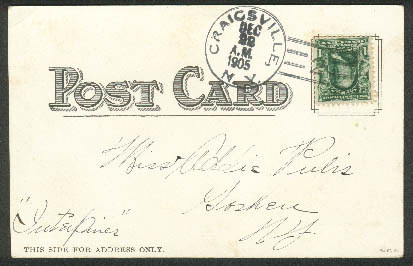 CRAIGSVILLE
DEC
28
A.M.
1905
N.Y.
POST CARD
Miss Addie Pulis
Goshen
NY
THIS SIDE FOR ADDRESS ONLY.